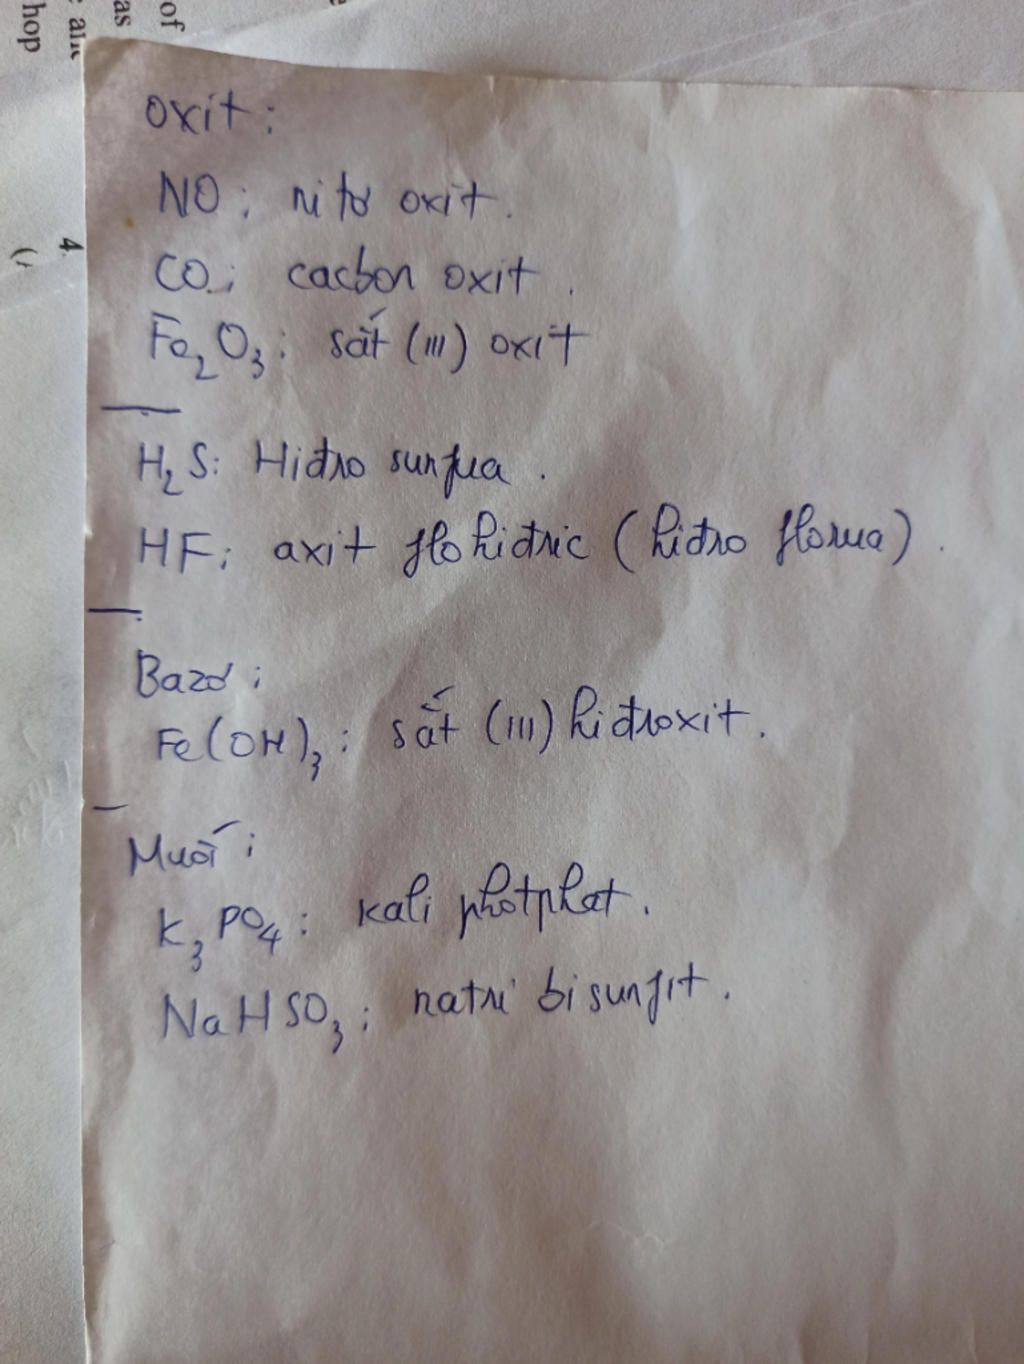 of
as
: an
hop
4.
oxit:
NO: nitơ oxit.
CO: cacbon oxit.
Fe₂O₃: sắt (III) oxit
H₂S: Hiđro sunfua.
HF: axit flohiđric (hiđro florua).
Bazơ:
Fe(OH)₃: sắt (III) hiđroxit.
Muối:
K₃PO₄: kali photphat.
NaHSO₃: natri bisunfit.